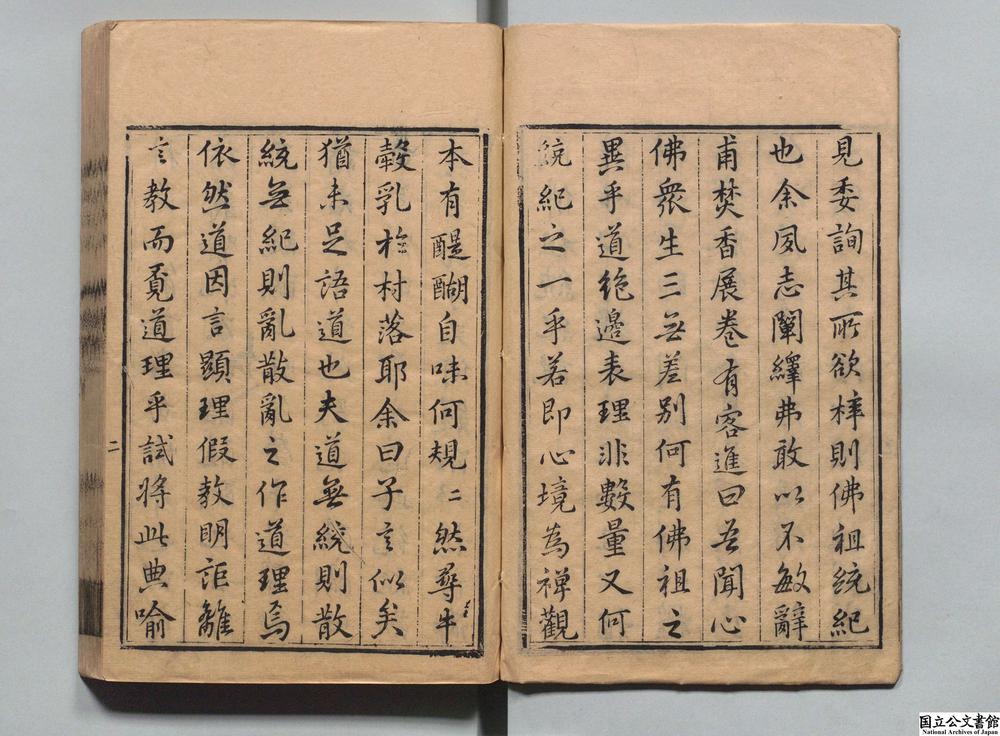 見委詢其所欲梓則佛祖統紀
也余夙志闡繹弗敢以不敏辭
甫焚香展卷有客進曰吾聞心
佛衆生三无差别何有佛祖之
異乎道絶邊表理非數量又何
統紀之一乎若即心境為禪觀
本有醍醐自味何規二然尋牛
㲉乳於村落耶余曰子言似矣
猶未足語道也夫道無統則散
統无紀則亂散亂之作道理焉
依然道因言顯理假教明詎離
言教而覓道理乎試將此典喻
二
国立公文書館
National Archives of Japan